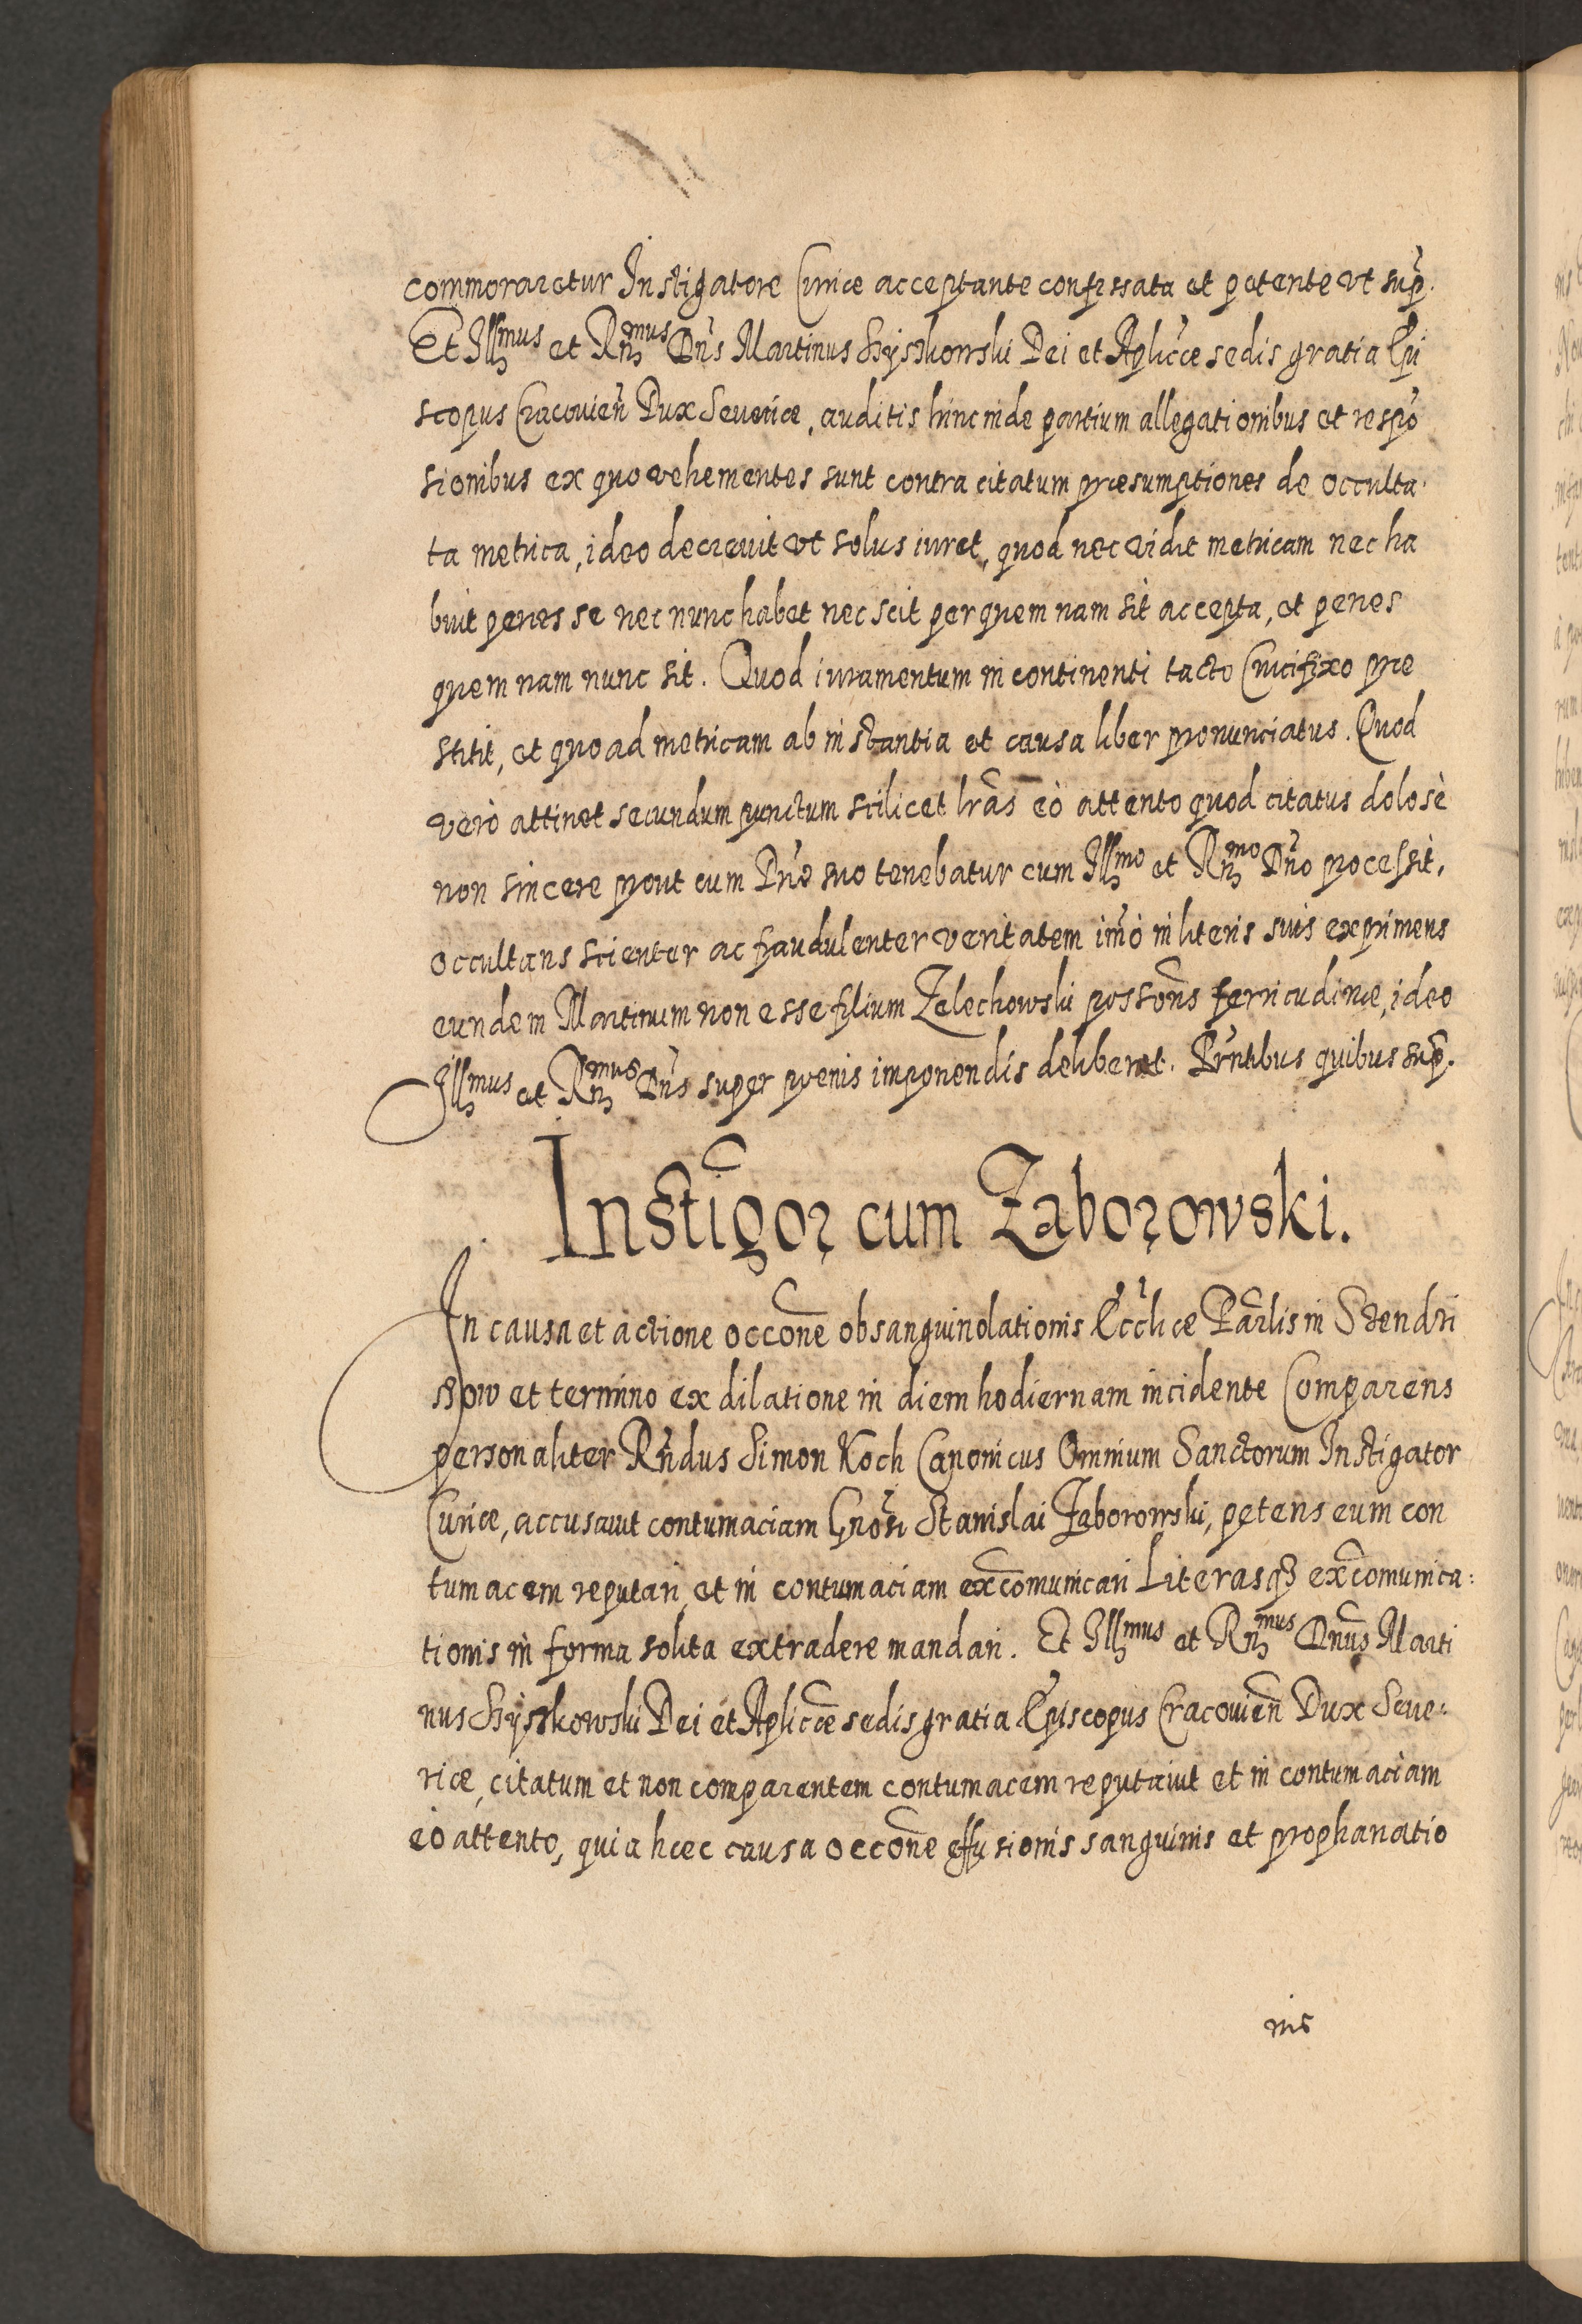 commoraretur Instigatore Curiæ acceptante confessata et petente ut supr.
Et Illmus et Rnmus Dnus Martinus Szyszkowski Dei et Aplicæ sedis gratia Epi
scopus Cracovien Dux Severiæ, auditis hinc inde partium allegationibus et respō
sionibus ex quo vehementes sunt contra citatum præsumptiones de occulta
ta metrica, ideo decrevit ut solus iuret, quod nec vidit metricam nec ha
buit penes se nec nunc habet nec scit per quem nam sit accepta, et penes
quem nam nunc sit. Quod iuramentum in continenti tacto Crucifixo præ
stitit, et quo ad metricam ab instantia et causa liber pronunciatus. Quod
verò attinet secundum punctum scilicet lras eò attento quod citatus dolosè
non sincere prout cum Dno suo tenebatur cum Illmo et Rnmo Dno processit,
occultans scienter ac fraudulenter veritatem imò in literis suis exprimens
eundem Martinum non esse filium Zelechowski possons ferricudinæ, ideo
Illmus et Rnmus Dns super pœnis imponendis deliberet. Prntibus quibus supr.
Instigor cum Zaborowski.
In causa et actione occone obsanguinolationis Ecclæ Parlis in Stendzi
szow et termino ex dilatione in diem hodiernam incidente Comparens
personaliter Rndus Simon Koch Canonicus Omnium Sanctorum Instigator
Curiæ, accusavit contumaciam Gnosi Stanislai Zaborowski, petens eum con
tumacem reputari, et in contumaciam excomunicari Literasqȝ excomunica:
tionis in forma solita extradere mandari. Et Illmus et Rnmus Dnus Marti
nus Szyszkowski Dei et Aplicæ sedis gratia Episcopus Cracovien Dux Seve:
riæ, citatum et non comparentem contumacem reputavit et in contumaciam
eò attento, quia hæc causa occone effusionis sanguinis et prophanatio
nis